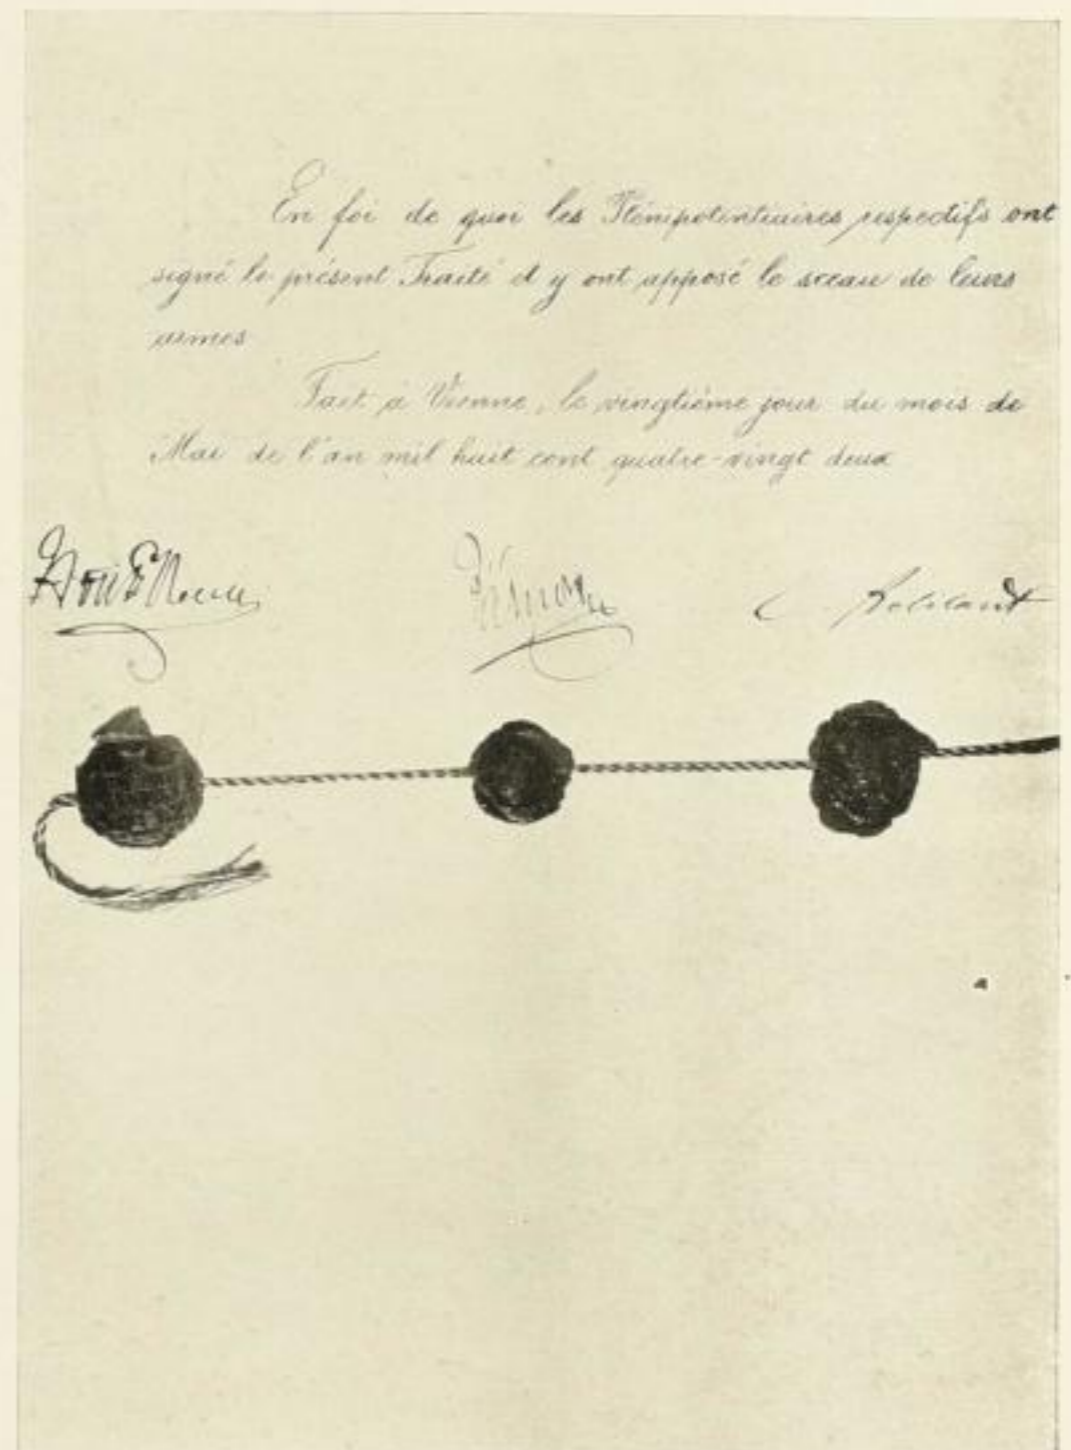 En foi de quoi les Plénipotentiaires respectifs ont
signé le présent Traité et y ont apposé le sceau de leurs
armes
Fait à Vienne, le vingtième jour du mois de
Mai de l'an mil huit cent quatre-vingt deux
Robilant